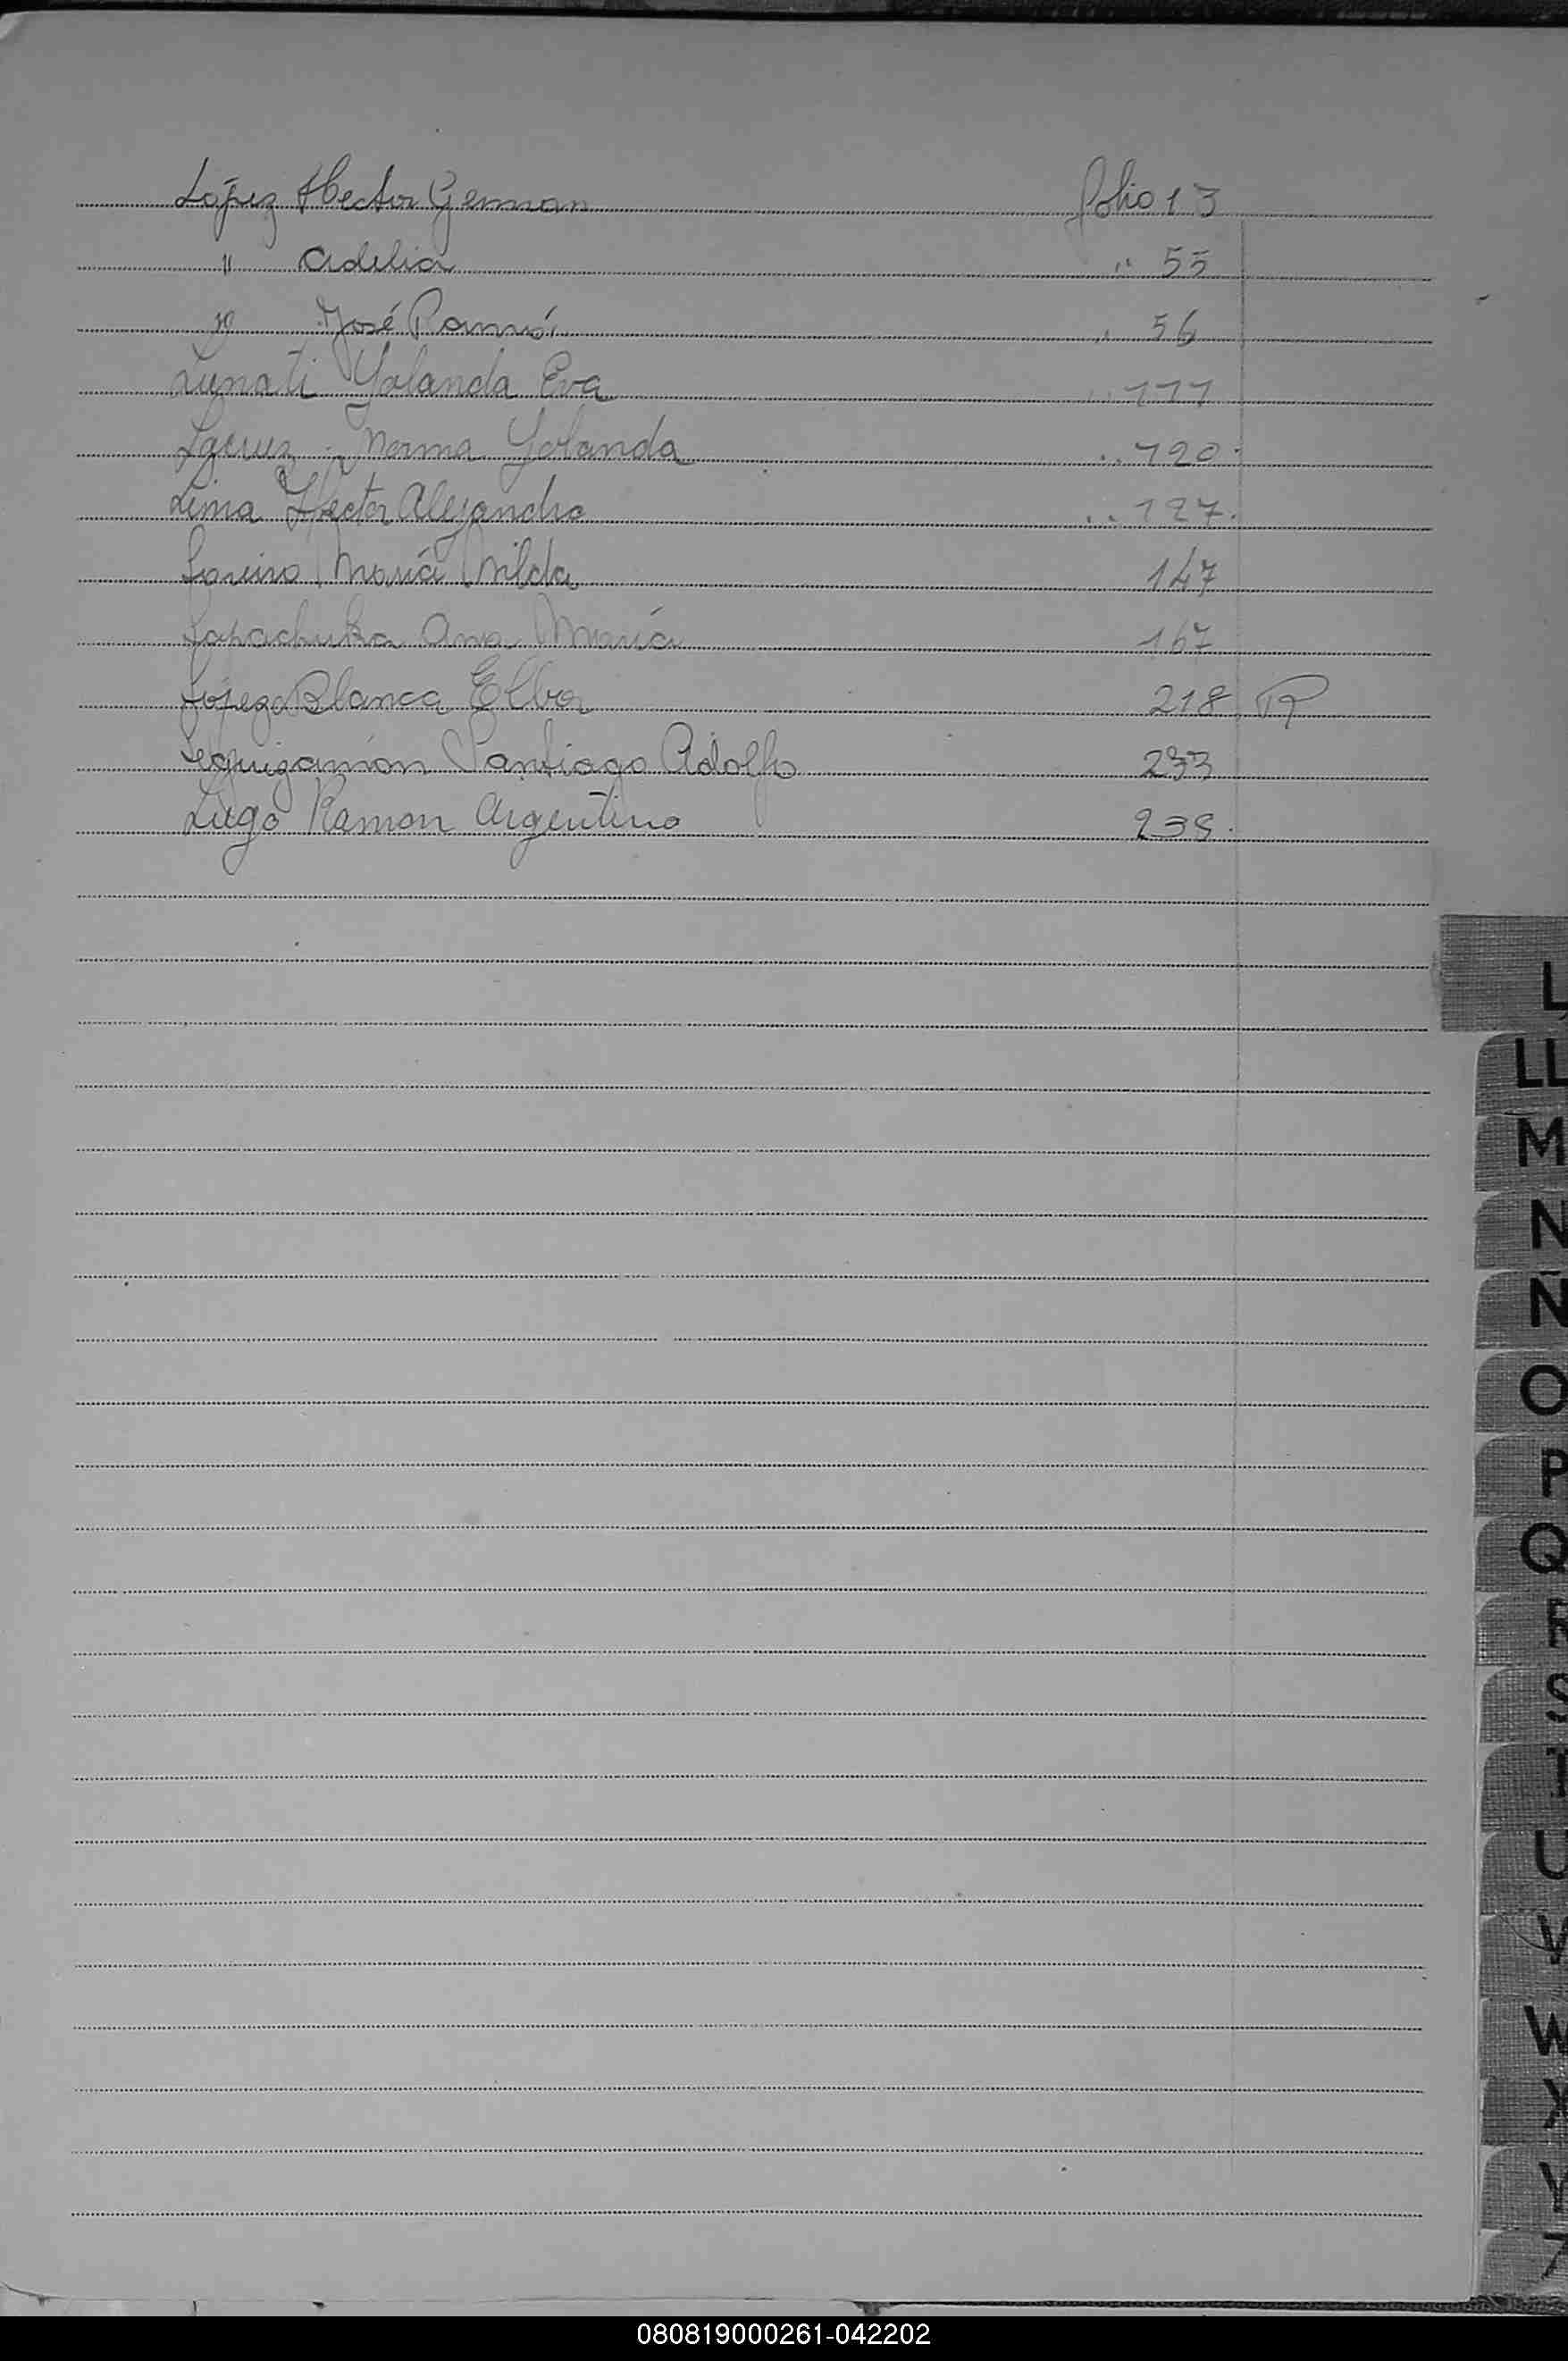 López Hector German folio 13
" Adelia " 55
" José Ramón " 56
Lunati Yolanda Eva " 111
Lacruz Norma Yolanda " 120
Lima Hector Alejandro " 127
María Nilda 147
Lapachuka Ana María 167
López Blanca Elba 218 R
Leguizamón Santiago Adolfo 233
Lugo Ramon Argentino 239
L
LL
M
N
Ñ
O
P
Q
R
S
T
U
V
W
X
Y
Z
080819000261-042202